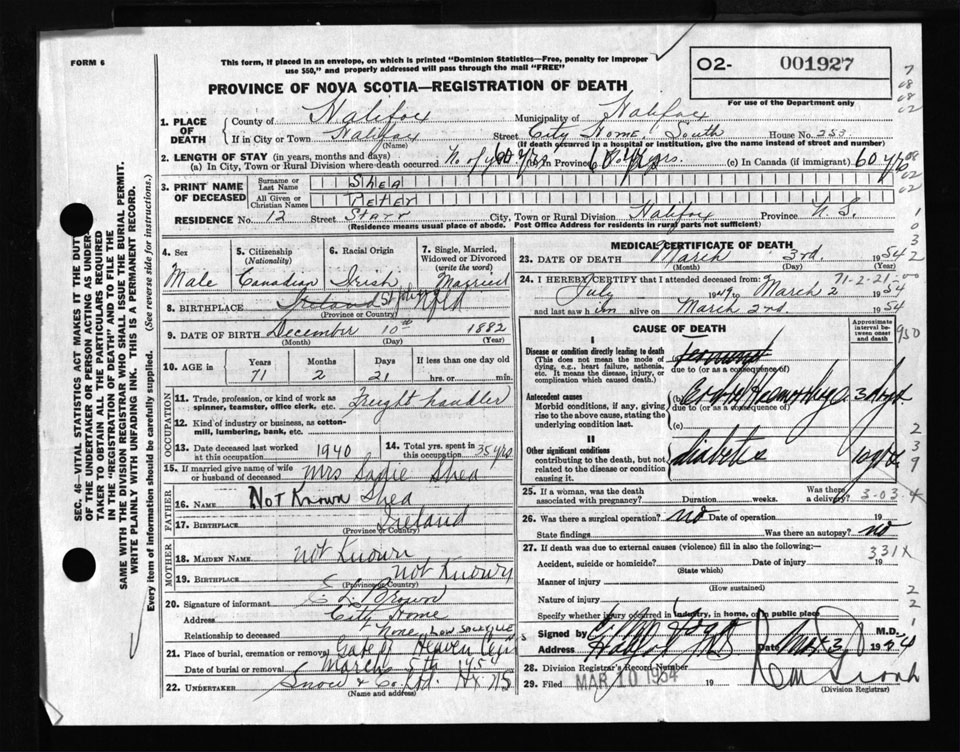 FORM 6
This form, if placed in an envelope, on which is printed "Dominion Statistics—Free, penalty for improper
use $50," and properly addressed will pass through the mail "FREE"
O2- 001927
For use of the Department only
PROVINCE OF NOVA SCOTIA—REGISTRATION OF DEATH
1. PLACE OF DEATH County of Halifax Municipality of Halifax
If in City or Town Halifax (Name) Street City Home, South House No. 253
(If death occurred in a hospital or institution, give the name instead of street and number)
2. LENGTH OF STAY (in years, months and days)
(a) In City, Town or Rural Division where death occurred No of yrs 60 yrs In Province 60 yrs. (c) In Canada (if immigrant) 60 yrs
3. PRINT NAME OF DECEASED Surname or Last Name Shea
All Given or Christian Names Peter
RESIDENCE No. 12 Street Starr City, Town or Rural Division Halifax Province N. S.
(Residence means usual place of abode. Post Office Address for residents in rural parts not sufficient)
4. Sex Male
5. Citizenship (Nationality) Canadian
6. Racial Origin Irish
7. Single, Married, Widowed or Divorced (write the word) Married
8. BIRTHPLACE Ireland St John's Nfld
(Province or Country)
9. DATE OF BIRTH December 10th 1882
(Month) (Day) (Year)
10. AGE in Years 71 Months 2 Days 21 If less than one day old hrs. or min.
OCCUPATION
11. Trade, profession, or kind of work as spinner, teamster, office clerk, etc. Freight handler
12. Kind of industry or business, as cotton-mill, lumbering, bank, etc.
13. Date deceased last worked at this occupation 1940
14. Total yrs. spent in this occupation 35 yrs
15. If married give name of wife or husband of deceased Mrs Sadie Shea
FATHER
16. Name Not Known Shea
17. Birthplace Ireland
(Province or Country)
MOTHER
18. Maiden Name not Known
19. Birthplace not Known
(Province or Country)
20. Signature of informant E L Brown
Address City Home
Relationship to deceased None
21. Place of burial, cremation or removal Gate of Heaven
Date of burial or removal March 5th 195
22. UNDERTAKER Snow & Co. Ltd. Hx
(Name and address)
MEDICAL CERTIFICATE OF DEATH
23. DATE OF DEATH March 3rd. 1954
(Month) (Day) (Year)
24. I HEREBY CERTIFY that I attended deceased from 71-2-21
July 1949 to March 2 1954
and last saw him alive on March 2nd. 1954
CAUSE OF DEATH
Approximate interval between onset and death
I
Disease or condition directly leading to death
(This does not mean the mode of dying, e.g., heart failure, asthenia, etc. It means the disease, injury, or complication which caused death.)
due to (or as a consequence of)
Antecedent causes
Morbid conditions, if any, giving rise to the above cause, stating the underlying condition last.
(b) Hemorrhage 3 days
due to (or as a consequence of)
(c)
II
Other significant conditions
contributing to the death, but not related to the disease or condition causing it.
diabetes 10 yrs
25. If a woman, was the death associated with pregnancy? Duration weeks. Was there a delivery? 3-03.4
26. Was there a surgical operation? no Date of operation 19
State findings Was there an autopsy? no
27. If death was due to external causes (violence) fill in also the following:— 331X
Accident, suicide or homicide? Date of injury 19
(State which)
Manner of injury
(How sustained)
Nature of injury
Specify whether injury occurred in industry, in home, or in public place
Signed by M.D.
Address Date 1954
28. Division Registrar's Record Number
29. Filed MAR 10 1954 19
(Division Registrar)
SEC. 46—VITAL STATISTICS ACT MAKES IT THE DUTY
OF THE UNDERTAKER OR PERSON ACTING AS UNDER-
TAKER TO OBTAIN ALL THE PARTICULARS REQUIRED
IN THE "REGISTRATION OF DEATH" AND TO FILE THE
SAME WITH THE DIVISION REGISTRAR WHO SHALL ISSUE THE BURIAL PERMIT.
WRITE PLAINLY WITH UNFADING INK. THIS IS A PERMANENT RECORD.
Every item of information should be carefully supplied. (See reverse side for instructions.)